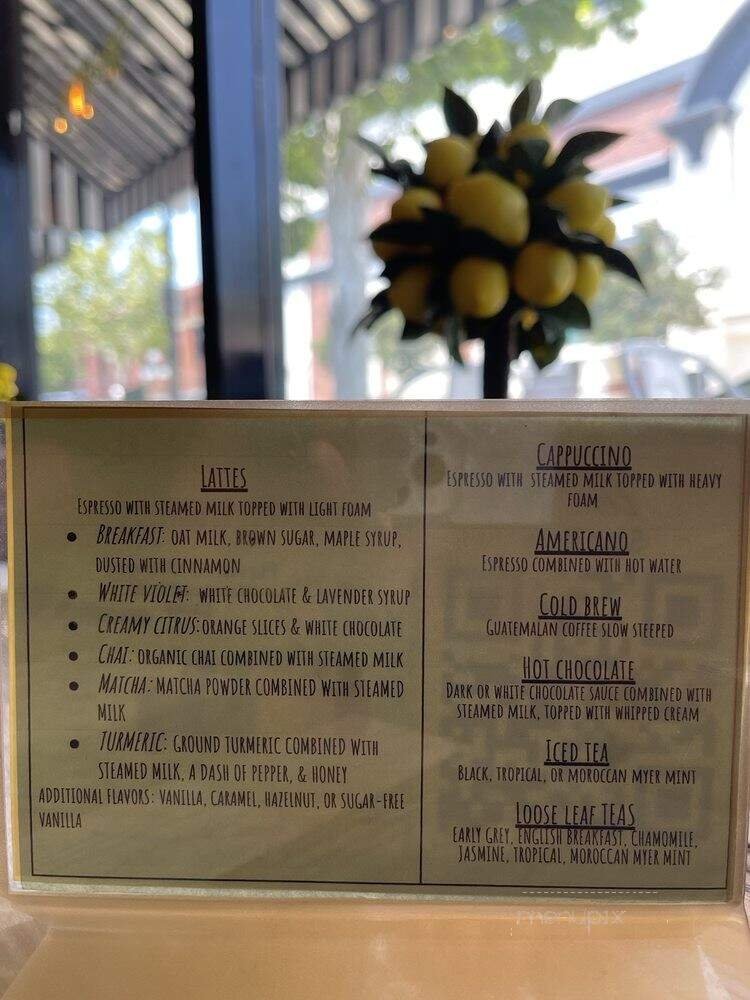 LATTES
ESPRESSO WITH STEAMED MILK TOPPED WITH LIGHT FOAM
• BREAKFAST: OAT MILK, BROWN SUGAR, MAPLE SYRUP,
DUSTED WITH CINNAMON
• WHITE VIOLET: WHITE CHOCOLATE & LAVENDER SYRUP
• CREAMY CITRUS: ORANGE SLICES & WHITE CHOCOLATE
• CHAI: ORGANIC CHAI COMBINED WITH STEAMED MILK
• MATCHA: MATCHA POWDER COMBINED WITH STEAMED
MILK
• TURMERIC: GROUND TURMERIC COMBINED WITH
STEAMED MILK, A DASH OF PEPPER, & HONEY
ADDITIONAL FLAVORS: VANILLA, CARAMEL, HAZELNUT, OR SUGAR-FREE
VANILLA
CAPPUCCINO
ESPRESSO WITH STEAMED MILK TOPPED WITH HEAVY
FOAM
AMERICANO
ESPRESSO COMBINED WITH HOT WATER
COLD BREW
GUATEMALAN COFFEE SLOW STEEPED
HOT CHOCOLATE
DARK OR WHITE CHOCOLATE SAUCE COMBINED WITH
STEAMED MILK, TOPPED WITH WHIPPED CREAM
ICED TEA
BLACK, TROPICAL, OR MOROCCAN MYER MINT
LOOSE LEAF TEAS
EARLY GREY, ENGLISH BREAKFAST, CHAMOMILE,
JASMINE, TROPICAL, MOROCCAN MYER MINT
menupix